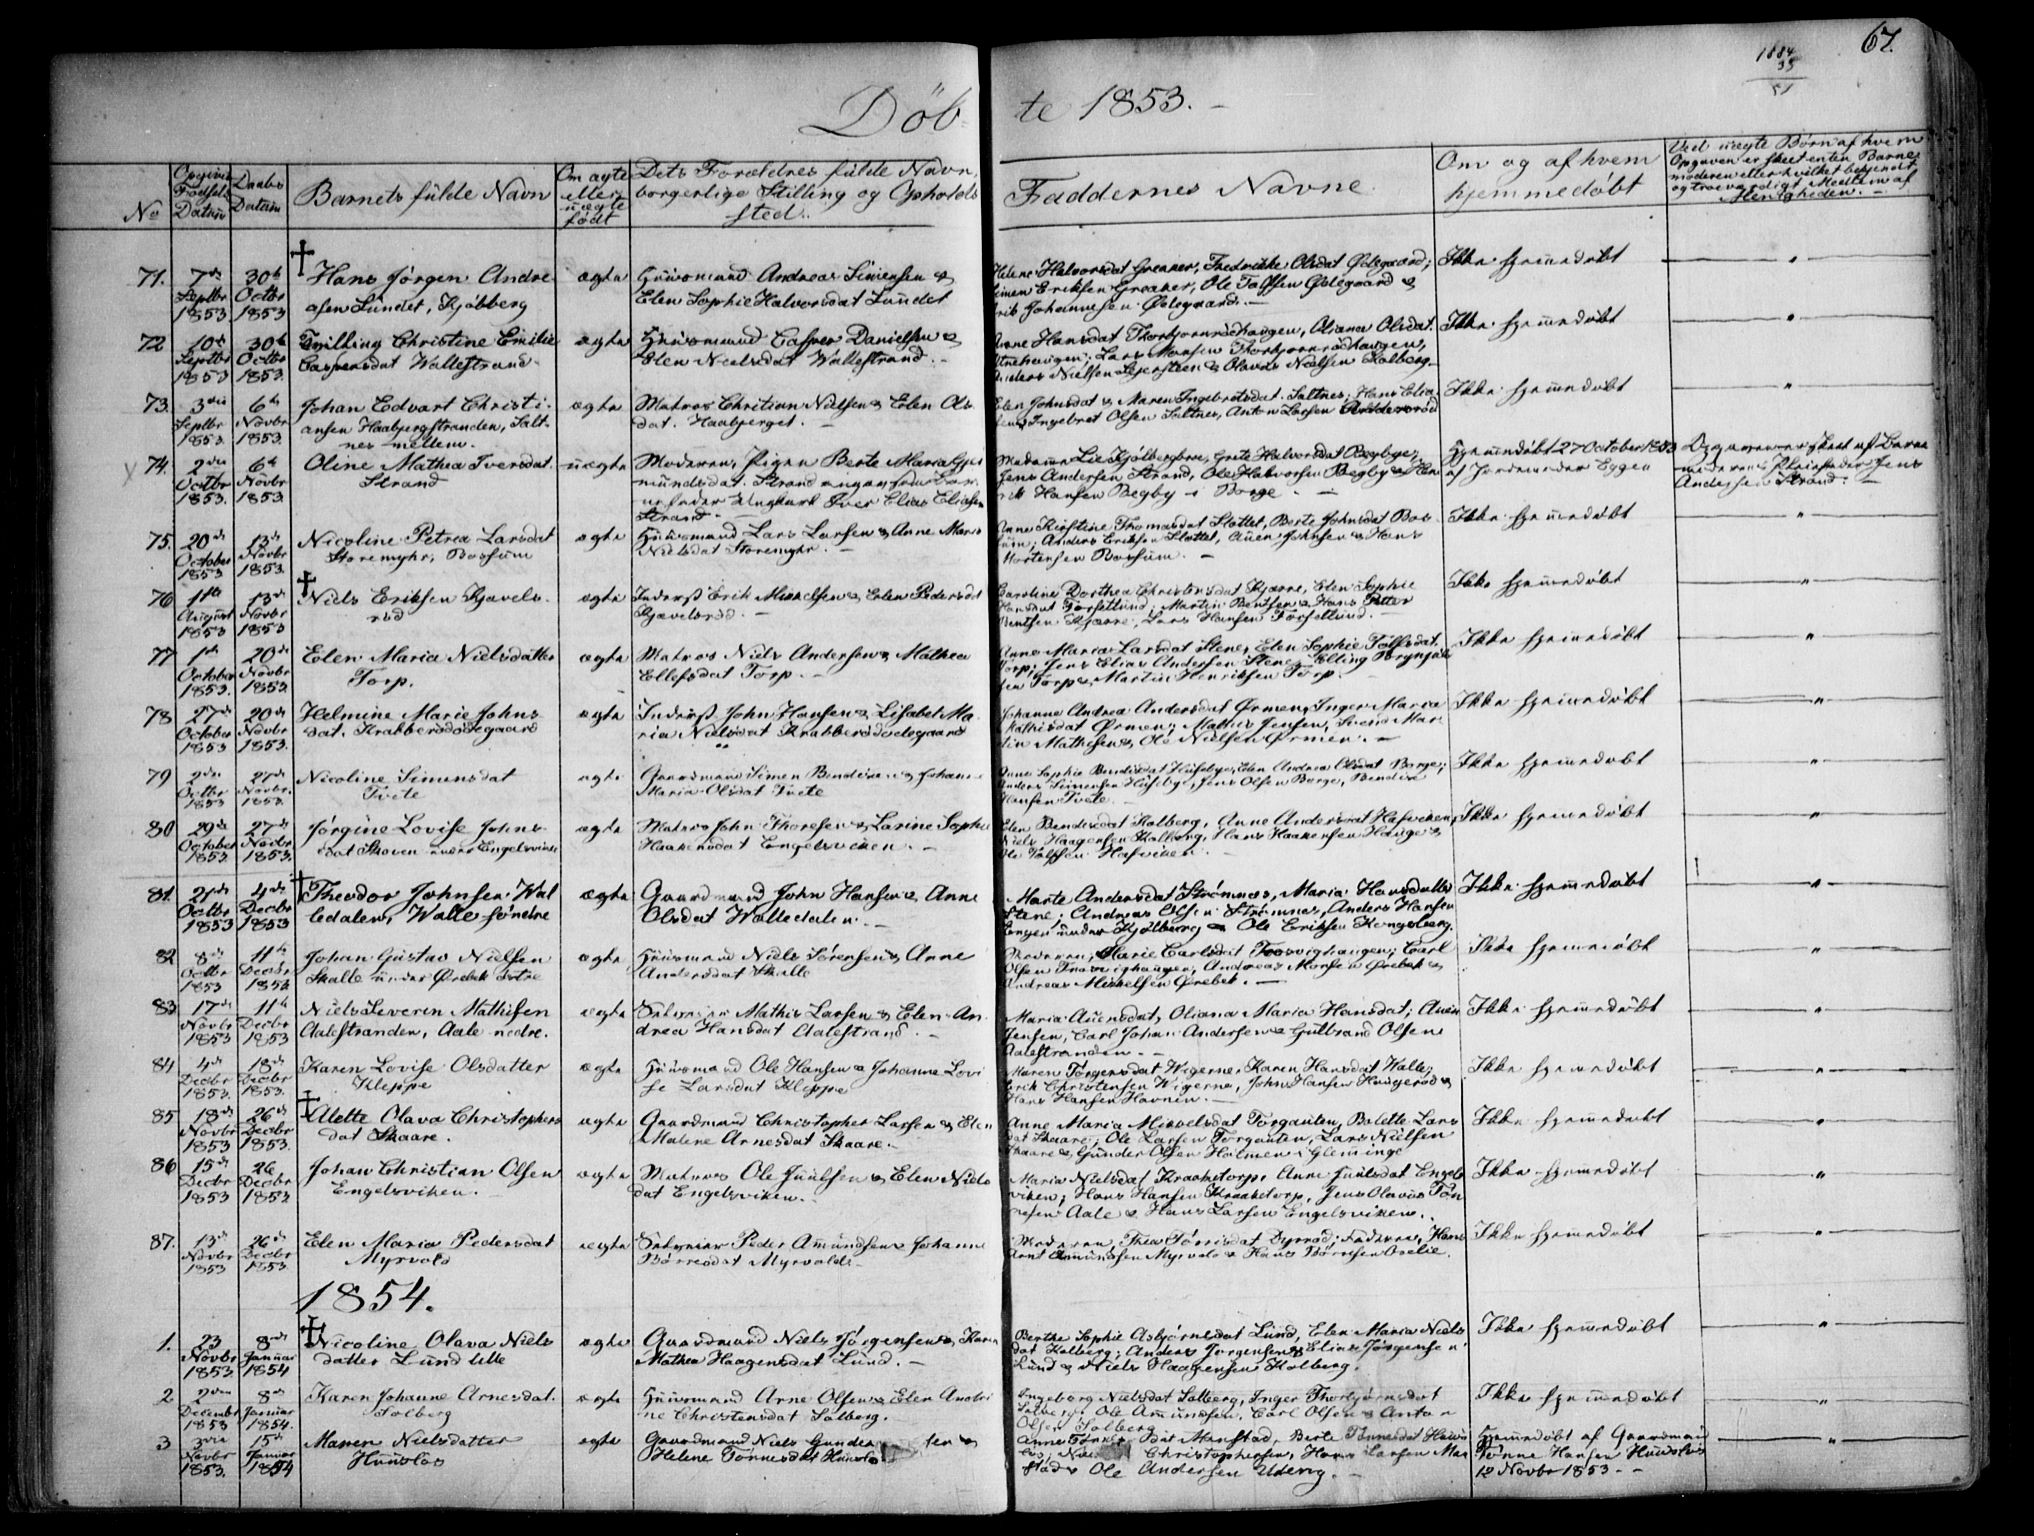 67.
1884
35
51
Döb-
te 1853.
No
Opgivne Fødsels Datum
Daabs Datum
Barnets fulde Navn
Om ægte eller uægte født
Dets Forældres fulde Navn, borgerlige Stilling og Opholdssted.
Faddernes Navne.
Om og af hvem hjemmedøbt
Ved uægte Børn af hvem Opgaven er skeet enten Barnemoderen eller hvilket bekjendt og troeværdigt Medlem af Menigheden.
71. 7de Septbr 1853 30te Octbr 1853
Hans Jørgen Andreasen Lundet, Kjølberg
ægte
Huusmand Andreas Simensen &
Elen Sophie Halvorsdat Lundet
Helene Halvorsdat Greaaer, Fredrikke Olsdat Ødegaard;
Simen Eriksen Greaker, Ole Tolfsen Ødegaard &
Erik Johannesen Ødegaard.
Ikke hjemmedøbt
72 10de Septbr 1853 30te Octbr 1853.
Tvilling Christine Emilie
Caspersdat Wallestrand
ægte
Huusmand Casper Danielsen &
Elen Nielsdat Wallestrand.
Anne Hansdat Thorbjørnrødhaugen, Oliana Olsdat
Lars Monsen Thorbjørnrødhaugen,
Anders Nielsen Lejersteen & Olavus Nielsen Kolberg
Ikke hjemmedøbt
73. 3die Septbr 1853. 6te Novbr 1853.
Johan Edvart Christiansen Haabjergstranden, Saltnes mellem.
ægte
Matros Christian Nielsen & Elen Asdat. Haabjerget.
Elen Johnsdat & Maren Ingebretsdat. Saltnes; Hans Elia
sen, Ingebret Olsen Saltnes, Anton Larsen
Ikke hjemmedøbt
74. 2den Octbr 1853 6te Novbr 1853
Oline Mathea Iversdat.
Strand
uægte
Moderen, Pigen Berte Maria Gude
mundsdat. Strand angav som Bar
nefader Ungkarl Iver Elias Eliasen
Strand.
Madamme Lie Kjølbergbro, Grete Halvorsdat Begbye;
Jens Andersen Strand, Ole Halvorsen Begby & Hen
rik Hansen Begby i Borge.
Hjemmedøbt 27 October 1853
af Jordemoder Eggen
Opgaven er skeet af Barne
moderens Pleiefader Jens
Andersen Strand.
75. 20de October 1853 13de Novbr 1853.
Nicoline Petrea Larsdat
Storemyhr, Bossum
ægte
Huusmand Lars Larsen & Anne Maria
Nielsdat Storemyhr.
Anne Kirstine Thomasdat Slottet, Berte Johnsdat Bos
sum; Anders Eriksen Slottet, Auen Johnsen & Hans
Mortensen Bossum.
Ikke hjemmedøbt
76 11te August 1853 13de Novbr 1853
Niels Eriksen Gjævels
rød
ægte
Inderst Erik Mikkelsen & Elen Pedersdat
Gjævelsrød.
Caroline Dorthea Christensdat Kjærre, Elen Sophie
Hansdat Torsetlund; Martin Bentsen & Hans Petter
Bentsen Kjærre, Lars Hansen Torsetlund.
Ikke hjemmedøbt
77 1ste October 1853. 20de Novbr 1853.
Elen Maria Nielsdatter
Torp.
ægte
Matros Niels Andersen & Mathea
Ellefsdat Torp.
Anne Maria Larsdat Stene, Elen Sophie Tolfsdat
Torp; Jens Elias Andersen Stene, Elling Brynjulf
sen Torp & Martin Henriksen Torp.
Ikke hjemmedøbt
78 27de October 1853 20de Novbr 1853.
Helmine Marie Johns
dat. Krabberødødegaard
ægte
Inderst John Hansen & Lisabet Ma
ria Nielsdat Krabberødødegaard
Johanne Andrea Andersdat Ørmen, Inger Maria
Mathisdat Ørmen; Mathis Jensen, Svend Mar
tin Mathisen & Ole Nielsen Ørmen.
Ikke hjemmedøbt
79 2den Octbr 1853 27de Novbr. 1853.
Nicoline Simensdat
Tvete
ægte
Gaardmand Simen Bendixen & Johanne
Maria Olsdat Tvete
Anne Sophie Bendixdat Husebye, Elen Andrea Olsdat Borge;
Anders Simensen Husebye, Jens Olsen Borge, Bendix
Hansen Tvete.
Ikke hjemmedøbt
80 29de October 1853 27de Novbr 1853.
Jørgine Lovise Johns
dat Skoven under Engelsviken
ægte
Matros John Thoresen & Larine Sophie
Haakensdat Engelsviken.
Elen Bendixdat Kolberg, Anne Andersdat Hasviken;
Niels Haagensen Kolberg, Hans Haakensen Hauge &
Ole Tolfsen Hasviken.
Ikke hjemmedøbt
81. 21de Octbr 1853 4de Decbr 1853
Theodor Johnsen Wal
ledalen, Walle søndre
ægte
Gaardmand John Hansen & Anne
Olsdat Walledalen.
Marte Andersdat Strømnæs, Maria Hansdatter
Stene; Andreas Olsen Strømnæs, Anders Hansen
Engen under Kjølberg & Ole Eriksen Kongsberg.
Ikke hjemmedøbt
82 8de Octbr 1853 11te Decbr 1853
Johan Gustav Nielsen
Skalle under Ørebek østre
ægte
Huusmand Niels Sørensen & Anne
Andersdat Skalle
Moderen, Marie Carlsdat Trosvighaugen; Carl
Olsen Trosvighaugen, Andreas Monsen Ørebek &
Andreas Mikkelsen Ørebek.
Ikke hjemmedøbt
83. 17de Novbr 1853 11te Decbr 1853
Niels Severin Mathisen
Aalestranden, Aale nedre.
ægte
Mathis Larsen & Elen An
drea Hansdat Aalestrand.
Maria Auensdat, Oliana Maria Hansdat; Auen
Jensen, Carl Johan Andersen & Gulbrand Olsen
Aalestranden.
Ikke hjemmedøbt
84 4de Decbr 1853. 18de Decbr 1853.
Karen Lovise Olsdatter
Kleppe
ægte
Huusmand Ole Hansen & Johanne Lovi
se Larsdat Kleppe
Maren Torgersdat Wigerne, Karen Hansdat Walle;
Erik Christensen Wigerne, John Hansen Huseerød &
Hans Hansen Havnen.
Ikke hjemmedøbt
85 18de Novbr 1853 26de Decbr 1853.
Alette Olava Christophers
dat Skaare.
ægte
Gaardmand Christopher Larsen & Elen
Malene Arnesdat Skaare.
Anne Maria Mikkelsdat Torgauten, Bolette Lars
dat Skaare; Ole Larsen Torgauten, Lars Nielsen
Skaare & Gunder Olsen Holmen i Glemminge
Ikke hjemmedøbt
86 15de Decbr 1853 26 Decbr 1853
Johan Christian Olsen
Engelsviken.
ægte
Matros Ole Juulsen & Elen Niels
dat Engelsviken.
Maria Nielsdat Kraaketorp, Anne Juulsdat Engels
viken; Hans Hansen Kraaketorp, Jens Olavus Tøn
nesen Aale & Hans Larsen Engelsviken.
Ikke hjemmedøbt
87. 13de Novbr 1853 26de Decbr 1853.
Elen Maria Pedersdat
Myrvold
ægte
Peder Amundsen & Johanne
Børresdat Myrvold.
Moderen, Thea Tørrisdat Dyrrød; Faderen, Hans
Arnt Amundsen Myrvold & Hans Børresen Oselie.
Ikke hjemmedøbt
1854.
1. 23 Novbr 1853 8de Januar 1854
Nicoline Olava Niels
datter Lund lille
ægte
Gaardmand Niels Jørgensen & Karen
Mathea Haagensdat Lund.
Berthe Sophie Asbjørnsdat Lund, Elen Maria Niels
dat Kolberg; Anders Jørgensen & Elias Jørgensen
Lund & Niels Haagensen Kolberg.
Ikke hjemmedøbt
2 2den Decembr 1853 8de Januar 1854.
Karen Johanne Arnesdat.
Solberg
ægte
Huusmand Arne Olsen & Elen Andri
ne Christensdat Solberg.
Ingeborg Nielsdat Solberg, Inger Thorbjørnsdat
Solberg; Ole Amundsen, Carl Olsen & Anton
Olsen Solberg
Ikke hjemmedøbt
3 3die Novbr 1853. 15de Januar 1854
Maren Nielsdatter
Huuslos
ægte
Gaardmand Niels Gunder sen &
Helene Tønnesdat Huuslos
Manstad, Berte Tønnesdat Huus
los; Christophersen, Hans Larsen Man
stad & Ole Andersen Udeng.
Hjemmedøbt af Gaardmand
Tønne Hansen Huuslos
12 Novbr 1853.